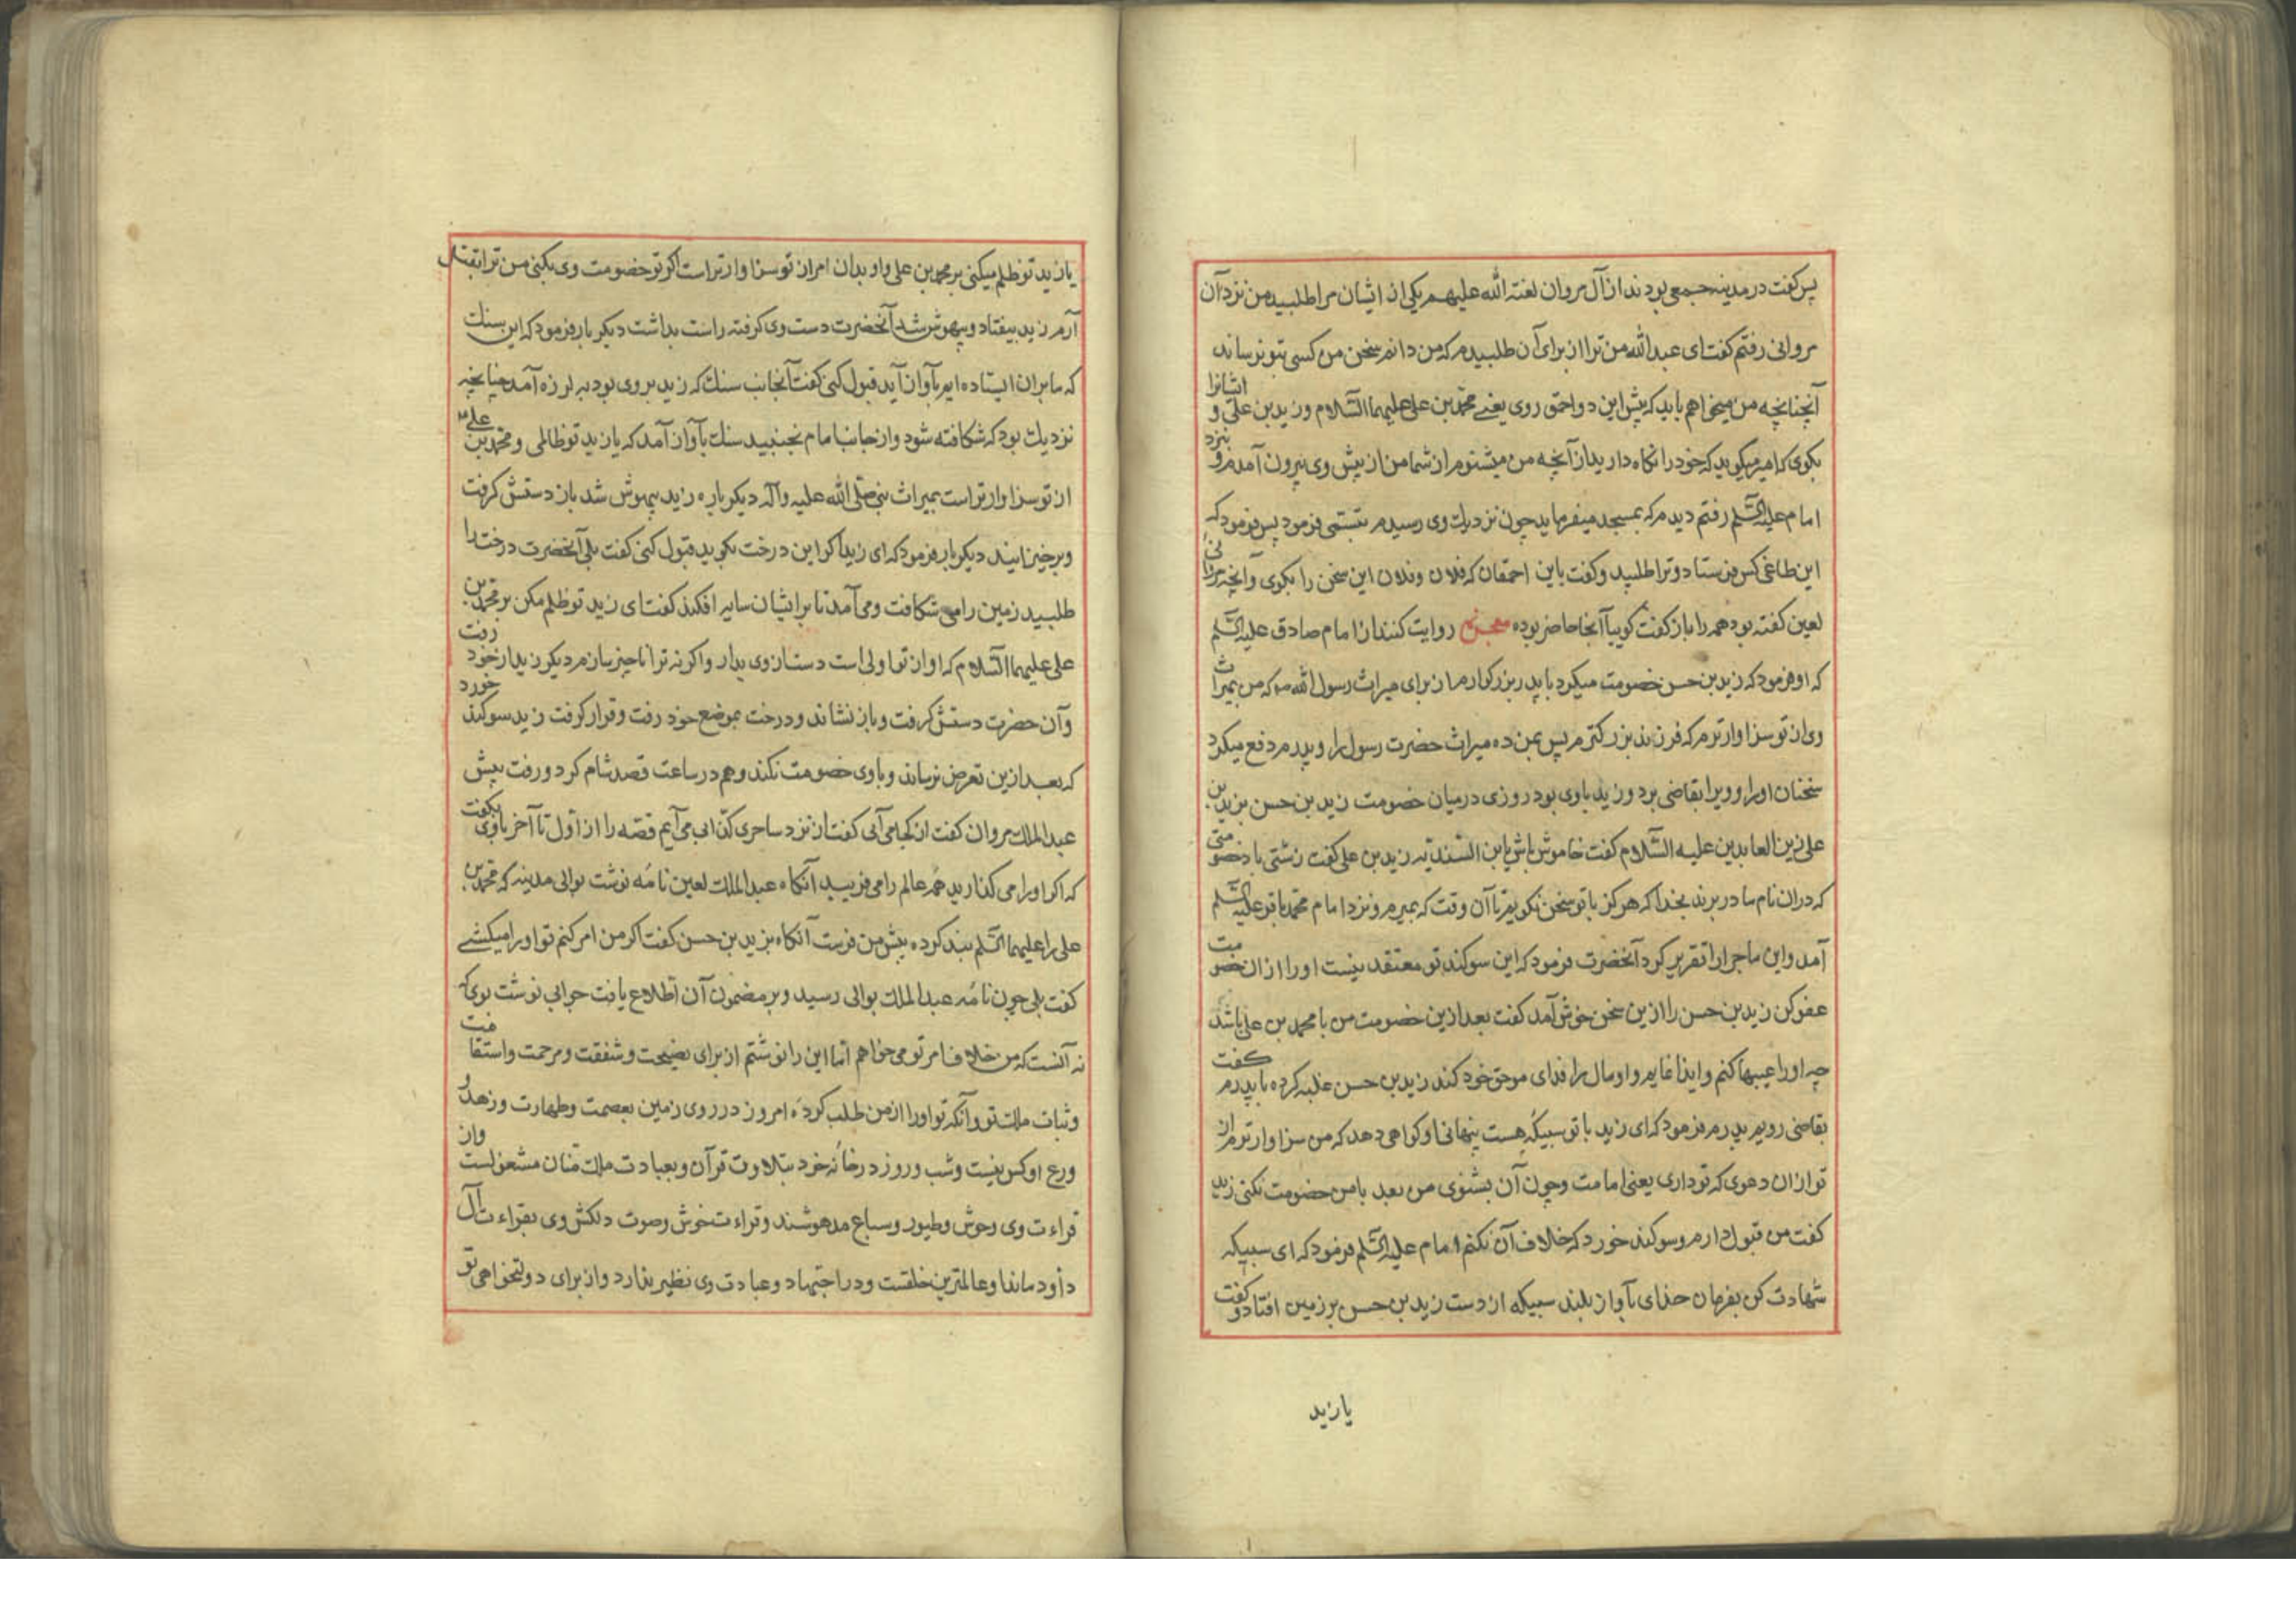 پس کفت در مدینه جمعی بودند از آل مروان لعنه الله علیهم یکی از ایشان مرا طلبید من نزد آن
مروانی رفتم کفت ای عبدالله من ترا از برای آن طلبیدم که من دانم سخن من کسی بتو نرساند
آنچنانچه من میخواهم باید که پیش این دو احمق روی یعنی محمد بن علی علیهما السّلام و زید بن علی و ایشانرا
بکوی که امیر میکوید که خود را نکاه دارید از آنچه من میشنوم از شما من از پیش وی بیرون آمدم و بنزد
امام علیه السّلم رفتم دیدم که بمسجد میفرماید چون نزدیک وی رسیدم تبسّمی فرمود پس فرمود که
این طاغی کس فرستاد و ترا طلبید و کفت باین احمقان که فلان و فلان این سخن را بکوی و آنچه مروانی
لعین کفته بود همه را باز کفت کوییا آنجا حاضر بوده معجزه روایت کنند از امام صادق علیه السّلم
که او فرمود که زید بن حسن خصومت میکرد با پدر بزرکوارم از برای میراث رسول الله ص که من بمیراث
وی از تو سزاوارترم که فرزند بزرکترم پس بمن ده میراث حضرت رسول را و پدرم دفع میکرد
سخنان او را و ویرا بقاضی برد و زید باوی بود روزی در میان خصومت زید بن حسن بزید بن
علی زین العابدین علیه السّلام کفت خاموش باش یابن السّندیّه زید بن علی کفت زشتی باد خصومتی
که دران نام مادر برند بخدا که هرکز با تو سخن نکویم تا آن وقت که بمیرم و نزد امام محمد باقر علیه السّلم
آمد و این ماجرا را تقریر کرد آنحضرت فرمود که این سوکند تو معتقد نیست او را از ان خصومت
عفو کن زید بن حسن را ازین سخن خوش آمد کفت بعد ازین خصومت من با محمد بن علی باشد
چه او را عیبها کنم و ایذا نمایم و او مال را فدای موحق خود کند زید بن حسن غلبه کرده با پدرم کفت
بقاضی رویم پدرم فرمود که ای زید با تو سبیکه هست پنهانی او کواهی دهد که من سزاوارترم از
تو از ان دعوی که تو داری یعنی امامت و چون آن بشنوی من بعد با من خصومت نکنی زید
کفت من قبول دارم و سوکند خورد که خلاف آن نکنم امام علیه السّلم فرمود که ای سبیکه
شهادت کن بفرمان خدای بآواز بلند سبیکه از دست زید بن حسن بر زمین افتاد و کفت
یا زید
یا زید تو ظلم میکنی بر محمد بن علی و او بدان امر از تو سزاوارتر است اکر تو خصومت وی بکنی من ترا بقتل
آرم زید بیفتاد و بیهوش شد آنحضرت دست وی کرفته راست بداشت دیکر بار فرمود که این سنک
که ما بران ایستاده ایم بآواز آید قبول کنی کفت آنجانب سنک که زید بر وی بود به لرزه آمد چنانچه
نزدیک بود که شکافته شود و از جانب امام نجنبید سنک بآواز آمد که یا زید تو ظالمی و محمد بن علی ع
از تو سزاوارتر است بمیراث نبی صلی الله علیه وآله دیکر باره زید بیهوش شد باز دستش کرفت
و برخیزانید دیکر بار فرمود که ای زید اکر این درخت بکوید قبول کنی کفت بلی آنحضرت درخت را
طلبید زمین را می شکافت و می آمد تا بر ایشان سایه افکند کفت ای زید تو ظلم مکن بر محمد بن
علی علیهما السّلام که او از تو اولی است دست از وی بدار و اکر نه ترا ناچیز سازم دیکر زید از خود رفت
و آن حضرت دستش کرفت و باز نشاند و درخت بموضع خود رفت و قرار کرفت زید سوکند خورد
که بعد ازین تعرض نرساند و باوی خصومت نکند و هم در ساعت قصد شام کرد و رفت پیش
عبدالملک مروان کفت از کجا می آیی کفت از نزد ساحری کذّاب می آیم قصه را از اوّل تا آخر باوی بکفت
که اکر او را می کذارید همه عالم را می فریبد آنکاه عبدالملک لعین نامه نوشت بوالی مدینه که محمد بن
علی را علیهما السّلم بند کرده پیش من فرست آنکاه بزید بن حسن کفت اکر من امر کنم تو او را میکشی
کفت بلی چون نامه عبدالملک بوالی رسید و بر مضمون آن اطّلاع یافت جوابی نوشت بوی که
نه آنست که من خلاف امر تو می خواهم امّا این را نوشتم از برای نصیحت و شفقت و مرحمت و استقامت
و ثبات ملک تو و آنکه تو او را از من طلب کردهٔ امروز در روی زمین بعصمت و طهارت و زهد و
ورع او کس نیست و شب و روز در خانه خود بتلاوت قرآن و بعبادت ملک منان مشغولست و از
قراءت وی وحوش و طیور و سباع مدهوشند و قراءت خوش و صوت دلکش وی بقراءت آل
داود ماند او عالمترین خلقست و در اجتهاد و عبادت وی نظیر ندارد و از برای دولتخواهی تو